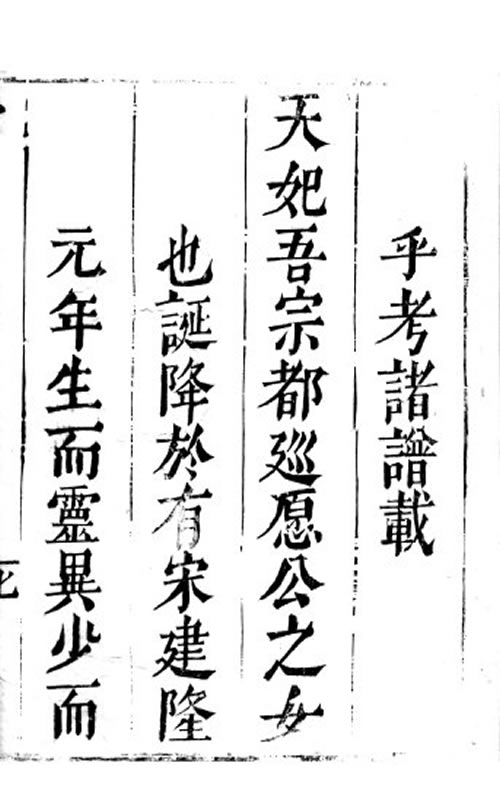 乎考諸譜載
天妃吾宗都廵愿公之女
也誕降於有宋建隆
元年生而靈異少而